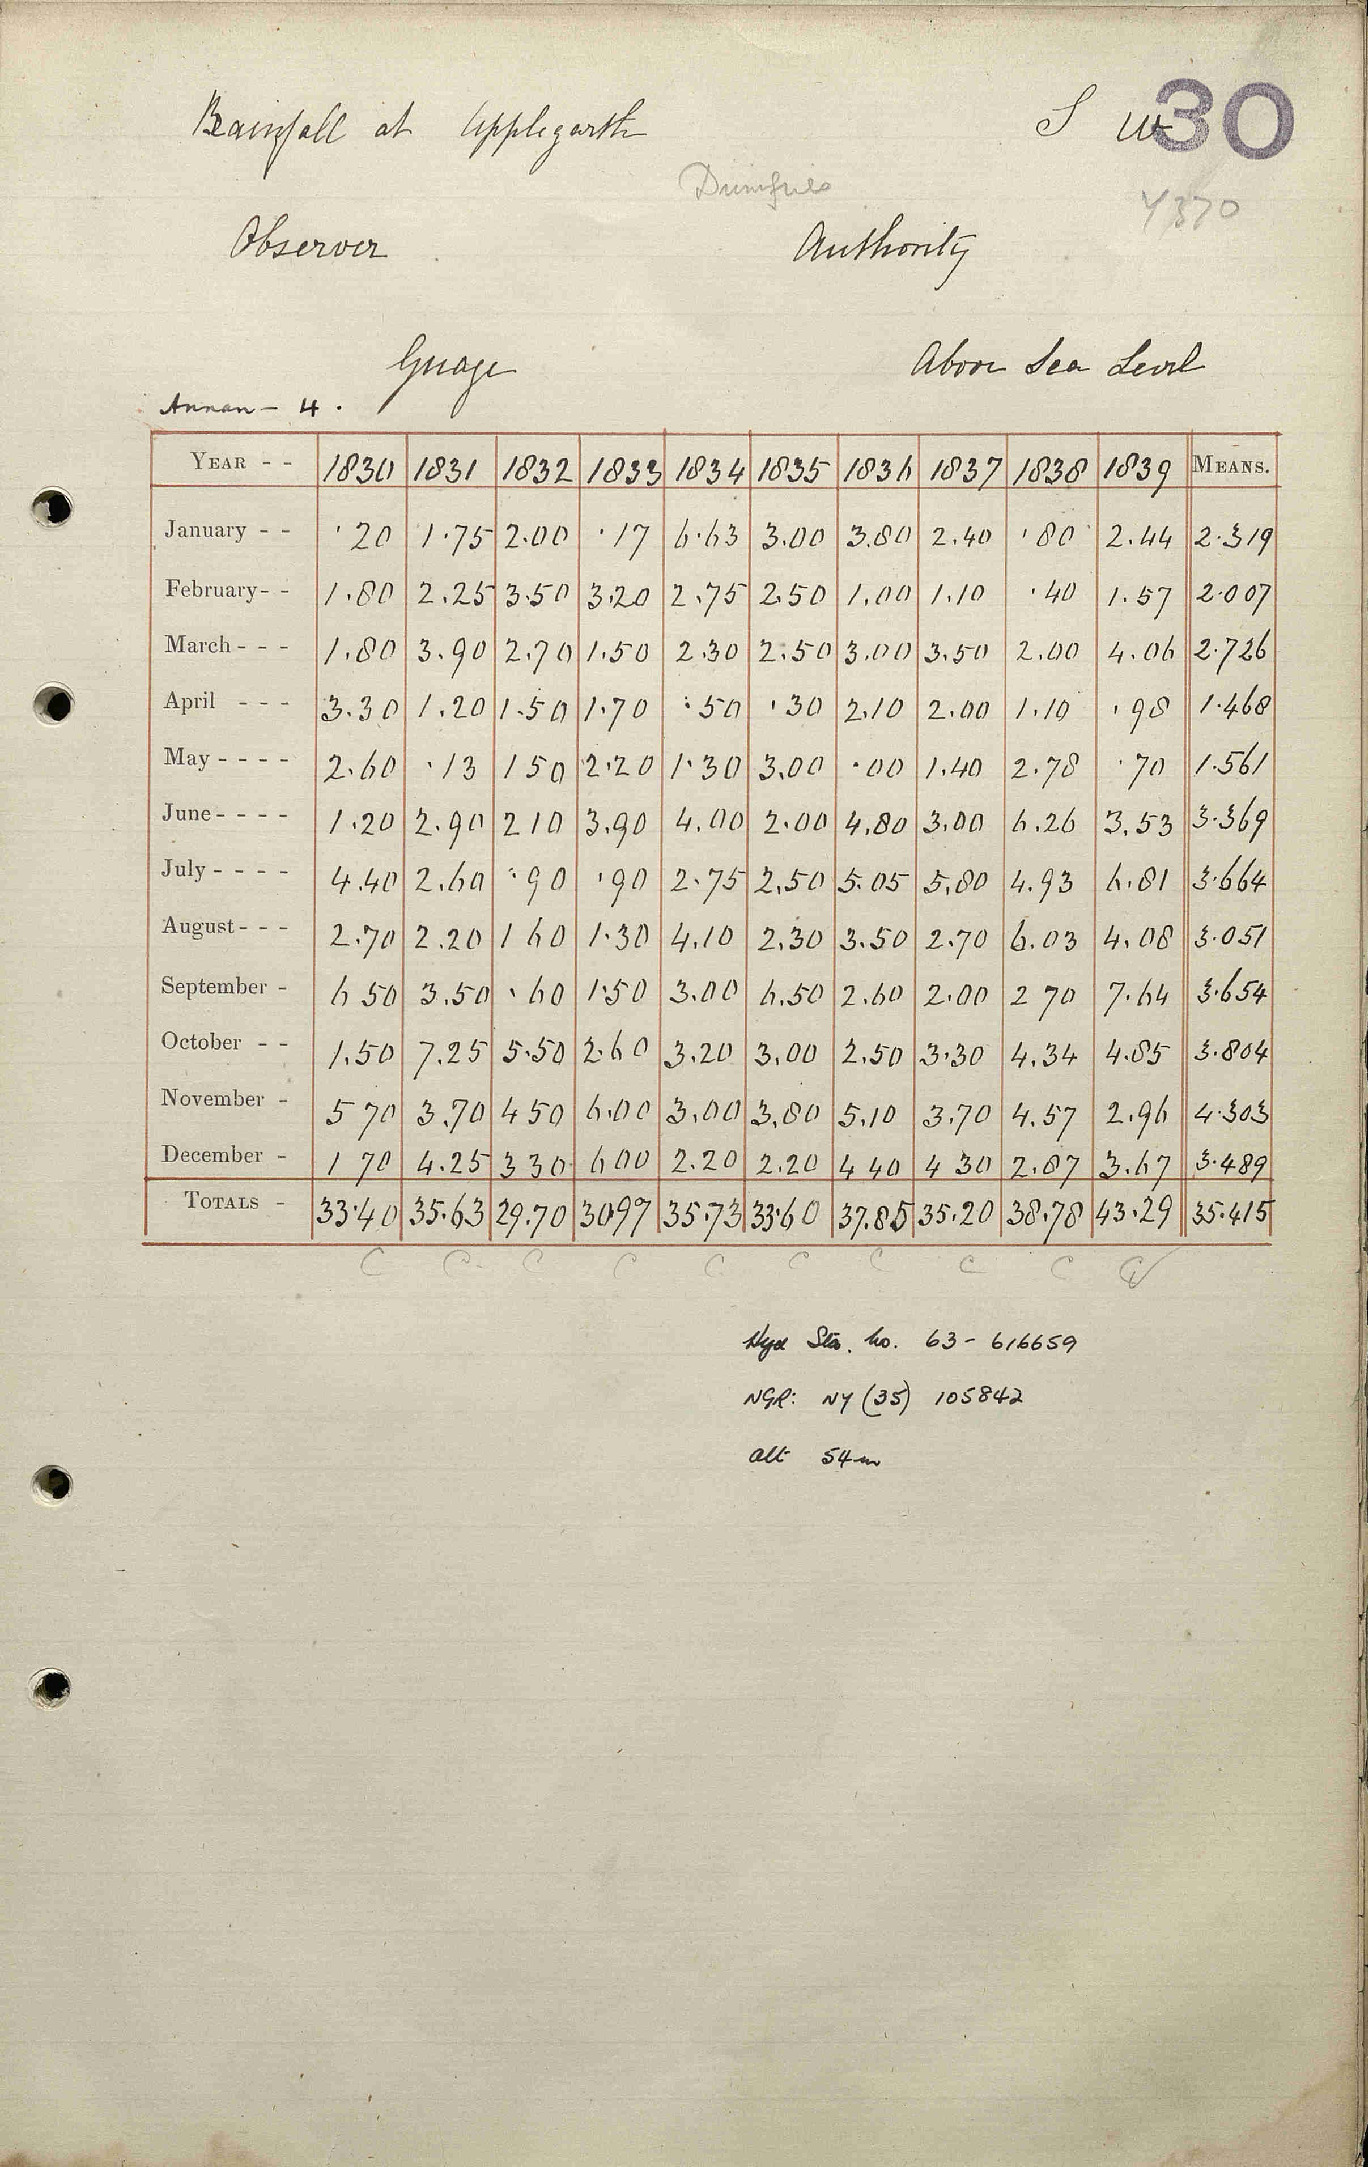 Rainfall at Applegarth S W 30
Dumfries 4370
Observer Authority
Guage Above Sea Level
Annan - 4.
YEAR - - 1830 1831 1832 1833 1834 1835 1836 1837 1838 1839 MEANS.
January - - ·20 1·75 2.00 ·17 6·63 3.00 3.80 2.40 ·80 2.44 2·319
February - - 1.80 2.25 3.50 3.20 2.75 2.50 1.00 1.10 ·40 1.57 2·007
March - - - 1.80 3.90 2.70 1.50 2.30 2.50 3.00 3.50 2.00 4.06 2·726
April - - - 3.30 1.20 1.50 1.70 ·50 ·30 2.10 2.00 1.10 ·98 1·468
May - - - - 2.60 ·13 1 50 2·20 1·30 3.00 ·00 1.40 2.78 ·70 1·561
June - - - - 1.20 2.90 2 10 3.90 4.00 2.00 4.80 3.00 6.26 3.53 3·369
July - - - - 4.40 2.60 ·90 ·90 2.75 2.50 5.05 5.80 4.93 6.81 3·664
August - - - 2.70 2.20 1 60 1.30 4.10 2.30 3.50 2.70 6.03 4.08 3·051
September - 6 50 3.50 ·60 1·50 3.00 6.50 2.60 2.00 2 70 7.64 3·654
October - - 1.50 7.25 5.50 2.60 3.20 3.00 2.50 3.30 4.34 4.85 3·804
November - 5 70 3.70 4 50 6.00 3.00 3.80 5.10 3.70 4.57 2.96 4·303
December - 1 70 4.25 3 30 6 00 2.20 2.20 4 40 4 30 2.87 3.67 3·489
TOTALS - 33·40 35·63 29.70 30.97 35.73 33·60 37.85 35.20 38.78 43.29 35·415
C C C C C C C C C
Hyd Sta. No. 63 - 616659
NGR: NY (35) 105842
Alt 54m